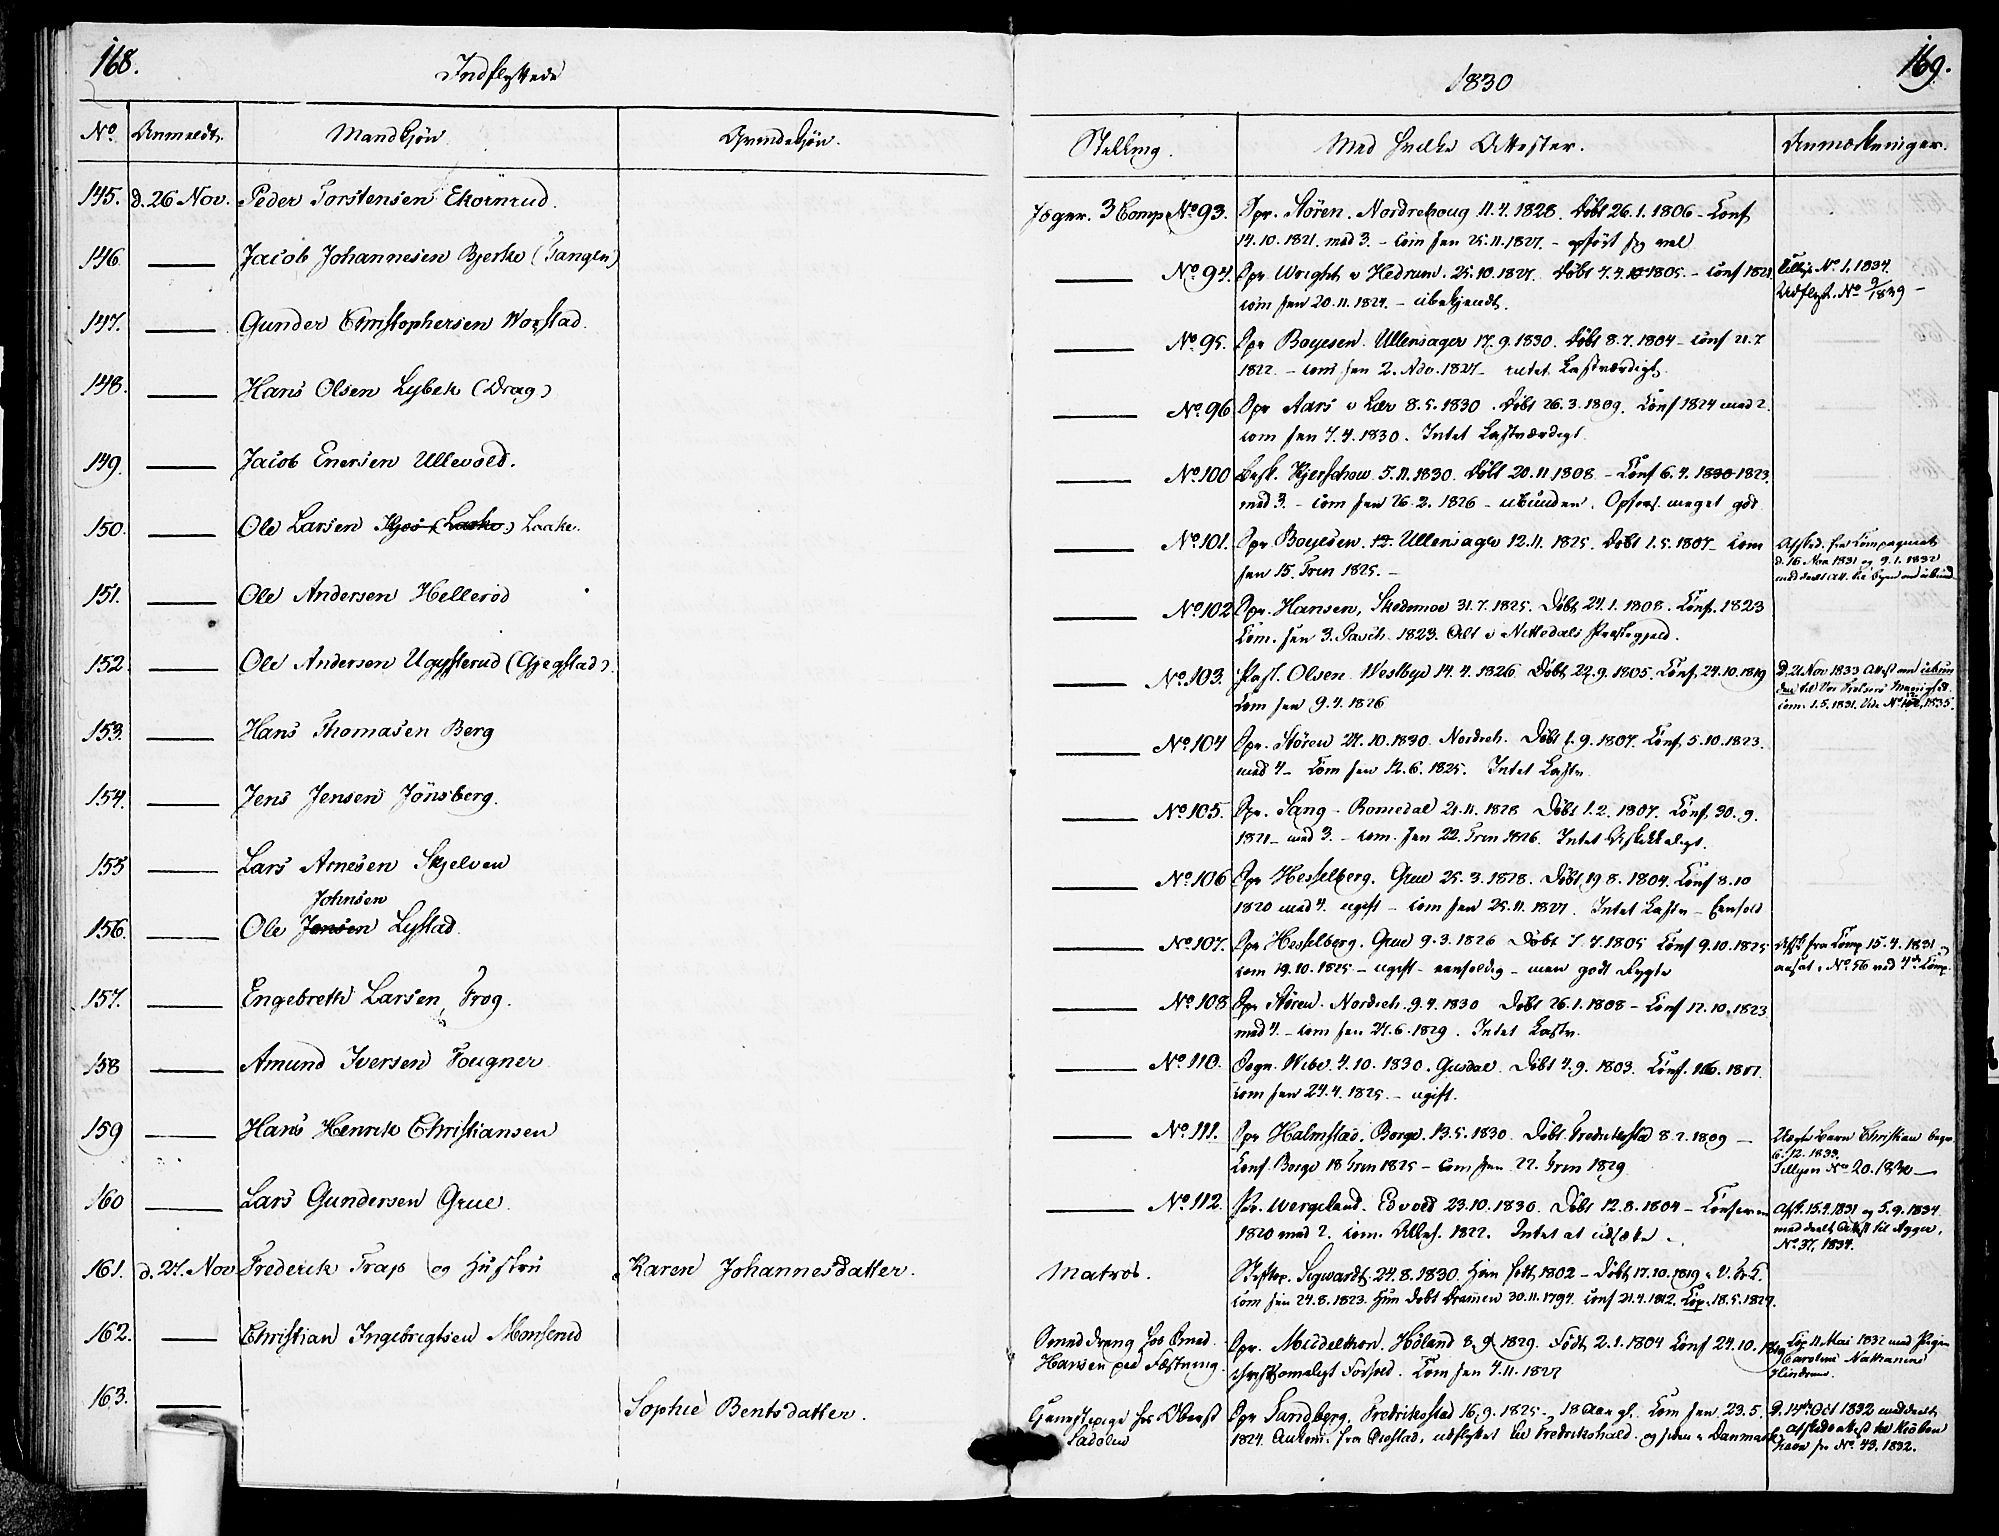 168.
Indflyttede
No Anmeldt. Mandkjön. Qvindekjön.
145. d. 26 Nov. Peder Torstensen Ekornrud.
146 Jacob Johannesen Bjerke (Tangen)
147. Gunder Christophersen Worstad.
148. Hans Olsen Lybek (Drag)
149. Jacob Enersen Ullevold.
150. Ole Larsen Laake.
151. Ole Andersen Helleröd
152 Ole Andersen (Gjegstad).
153. Hans Thomasen Berg
154. Jens Jensen Jönsberg.
155 Lars Arnesen Skjelven
Johnsen
156. Ole Jensen Lystad.
157. Engebreth Larsen, Frog.
158 Amund Iversen Fougner
159 Hans Henrik Christiansen
160 Lars Gundersen Grue.
161. d. 27. Nov Frederik Trap og Hustru Karen Johannesdatter.
162. Christian Ingebrigtsen Monserud
163. Sophie Bentsdatter.
1830
169.
Stilling. Med hvilke Attester. Anmærkninger.
Jæger. 3 Comp No 93. Spr. Stören. Nordrehoug 11.4.1828. Döbt 26.1.1806 - Conf
14.10.1821. med 3. - Com sen 25.11.1827. - opfört sig vel
No 94. Spr Wright i Hedrum. 25.10.1827. Döbt 7.4.1805. - Conf 1821 Tillys No 1. 1834.
Com sen 20.11.1824. - ubekjendt. Udflyt. No 9/1839 -
No 95. Spr Boyesen. Ullensager 17.9.1830. Döbt 8.7.1804 - Conf 21.7
1822. - Com sen 2. Nov. 1827 - intet Lastværdigt.
No 96 Spr Aars i Lier 8.5.1830. Döbt 26.3.1809. Conf 1824 med 2.
Com sen 7.4.1830. Intet Lastværdigt.
No 100 Kjerschow 5.11.1830. Döbt 20.11.1808 - Conf 6.4. 1823.
med 3. - Com sen 26.2.1826 - ubunden. Opförs. meget god
No 101. Spr Boyesen. Ullensager 12.11.1825. Döbt 1.5.1807 - Com Afsked. fra Compagniet
sen 15. Trin 1825. - d. 16 Nov 1831 og 9.1.1832
No 102 Spr. Hansen, Skedsmoe 31.7.1825. Döbt 24.1.1808. Conf. 1823
Com. sen 3. Pasch. 1823. Alt i Nittedals Præstegjeld.
No 103. Past. Olsen Westbye 14.4.1826 Döbt 22.9.1805. Conf. 24.10.1819 D. 21 Nov 1833 Attest om ubun
Com sen 9.4.1826 den til Vor Frelsers Menighed.
No 104 Spr. Stören 27.10.1830. Nordreh. Döbt 1.9.1807. Conf. 5.10.1823.
med 4 - Com sen 12.6.1825. Intet Lastv.
No 105. Spr. Sang - Romedal 21.11.1828 Döbt 1.2.1807. Conf. 30.9.
1821 - med 3. - com. sen 22. Trin 1826. Intet
No 106 Spr Hesselberg. Grue 25.3.1828. Döbt 19.8.1804. Conf 8.10
1820 med 4. ugift - Com sen 25.11.1827. Intet Lastv - Eenfold
No 107. Spr Hesselberg. Grue 9.3.1826 Döbt 7.7.1805 Conf 9.10.1825 Afsk. fra Comp 15.4.1831 og
com 19.10.1825 - ugift - eenfoldig - men godt Rygte ansat i No 56 ved 4de Comp.
No 108 Spr Stören. Nordreh. 9.4.1830 Döbt 26.1.1808 - Conf 12.10.1823.
med 4. - Com sen 27.6.1829. Intet Lastv.
No 110. Sogn. Wibe 4.10.1830. Gusdal. Döbt 4.9.1803. Conf.
Com sen 24.4.1825. - ugift.
No 111. Spr Halmstad. Borge. 13.5.1830. Döbt Fredrikstad 8.2.1809 - Uægte Barn Christian begr
Conf. Borge 18 Trin 1825 - Com sen 22. Trin 1829 6.12.1833.
No 20. 1830 -
No 112. Pr. Wergeland. Edvold 23.10.1830. Döbt 12.8.1804 - Confirm Afsk. 15.9.1831 og 5.9.1834
1820 med 2. com. 1822. Intet at udsætte. meddeelt Attest til Agger,
No 37, 1834.
Matros. Sigwardt. 24.8.1830. Han födt 1802 - Döbt 17.10.1819 i V. Fr K.
com sen 24.8.1823. Hun döbt Drammen 30.11.1794. conf 21.4.1812. Cop. 18.5.1827.
Smeddreng hos Smed Spr. Middelthon. Höland 8.9.1829. Födt 2.1.1804 Conf 24.10.1819 Cop 11 Mai 1832 med Pigen
Hansen paa Fæstning. christommeligt Forhold. Com sen 4.11.1827 Caroline Nathanine
Tjenestepige hos Oberst Spr Sundberg. Fredrikstad 16.9.1825 - 18 Aar gl. Com sen 23.5. D. 14de Oct 1832 meddeelt
Sadolin 1824. Ankom. fra Qvistad, udflyttet til Fredrikshald og siden i Danmark Afskedsattest til Kiöben
havn sr No 43. 1832.